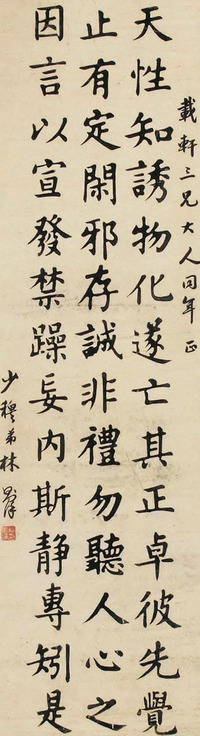 載軒三兄大人同年正
天性知誘物化遂亡其正卓彼先覺
止有定閑邪存誠非禮勿聽人心之
因言以宣發禁躁妄內斯靜專矧是
少穆弟林則徐